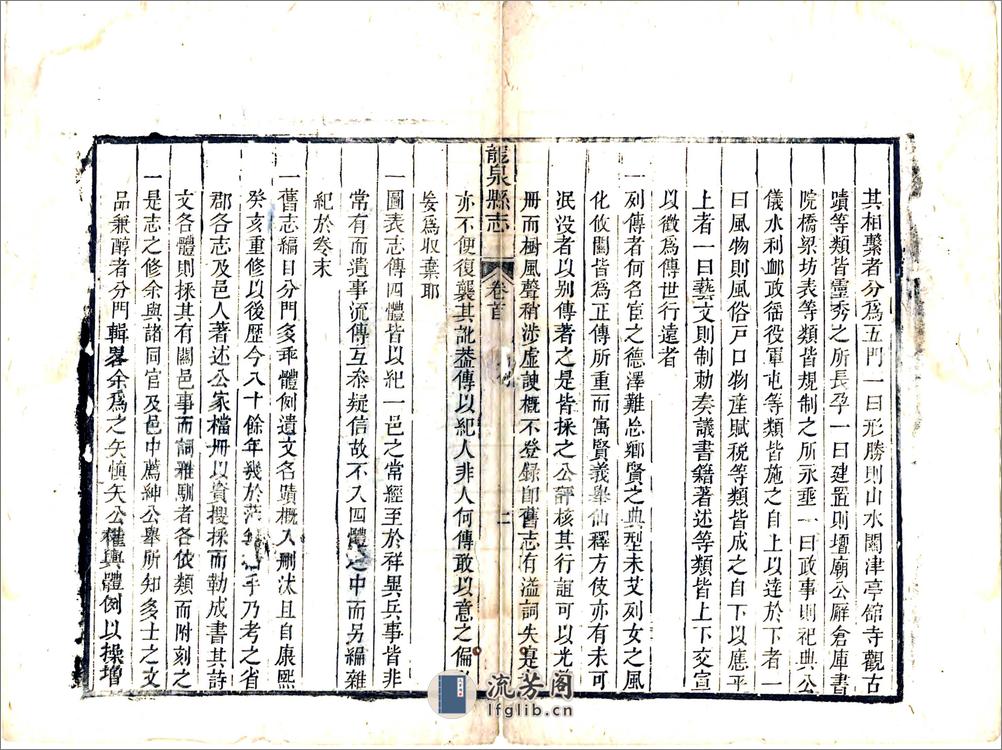 其相繫者分爲五門一曰形勝則山水關津亭舘寺觀古
蹟等類皆靈秀之所長孕一曰建置則壇廟公廨倉庫書
院橋梁坊表等類皆規制之所永垂一曰政事則祀典公
儀水利卹政徭役軍屯等類皆施之自上以達於下者一
曰風物則風俗戸口物產賦稅等類皆成之自下以應乎
上者一曰藝文則制勅奏議書籍著述等類皆上下交宣
以徴爲傳世行遠者
一列傳者何名宦之德澤難忘鄉賢之典型未艾列女之風
化攸關皆爲正傳所重而寓賢義舉仙釋方伎亦有未可
泯没者以別傳著之是皆採之公評核其行誼可以光史
册而樹風聲稍涉虛諛概不登録卽舊志有溢詞失寔者
龍泉縣志
卷首
二
亦不便復襲其訛葢傳以紀人非人何傳敢以意之偏
爰爲収棄耶
一圖表志傳四體皆以紀一邑之常經至於祥異兵事皆非
常有而遺事流傳互叅疑信故不入四體之中而另編雜
紀於卷末
一舊志編目分門多乖體例遺文名蹟概入刪汰且自康熙
癸亥重修以後歷今八十餘年幾於茫乎乃考之省
郡各志及邑人著述公家檔册以資搜採而勒成書其詩
文各體則採其有關邑事而詞雅馴者各依類而附刻之
一是志之修余與諸同官及邑中薦紳公舉所知多士之文
品兼醇者分門輯畧余爲之矢慎矢公權輿體例以操增
流芳阁
lfglib.cn